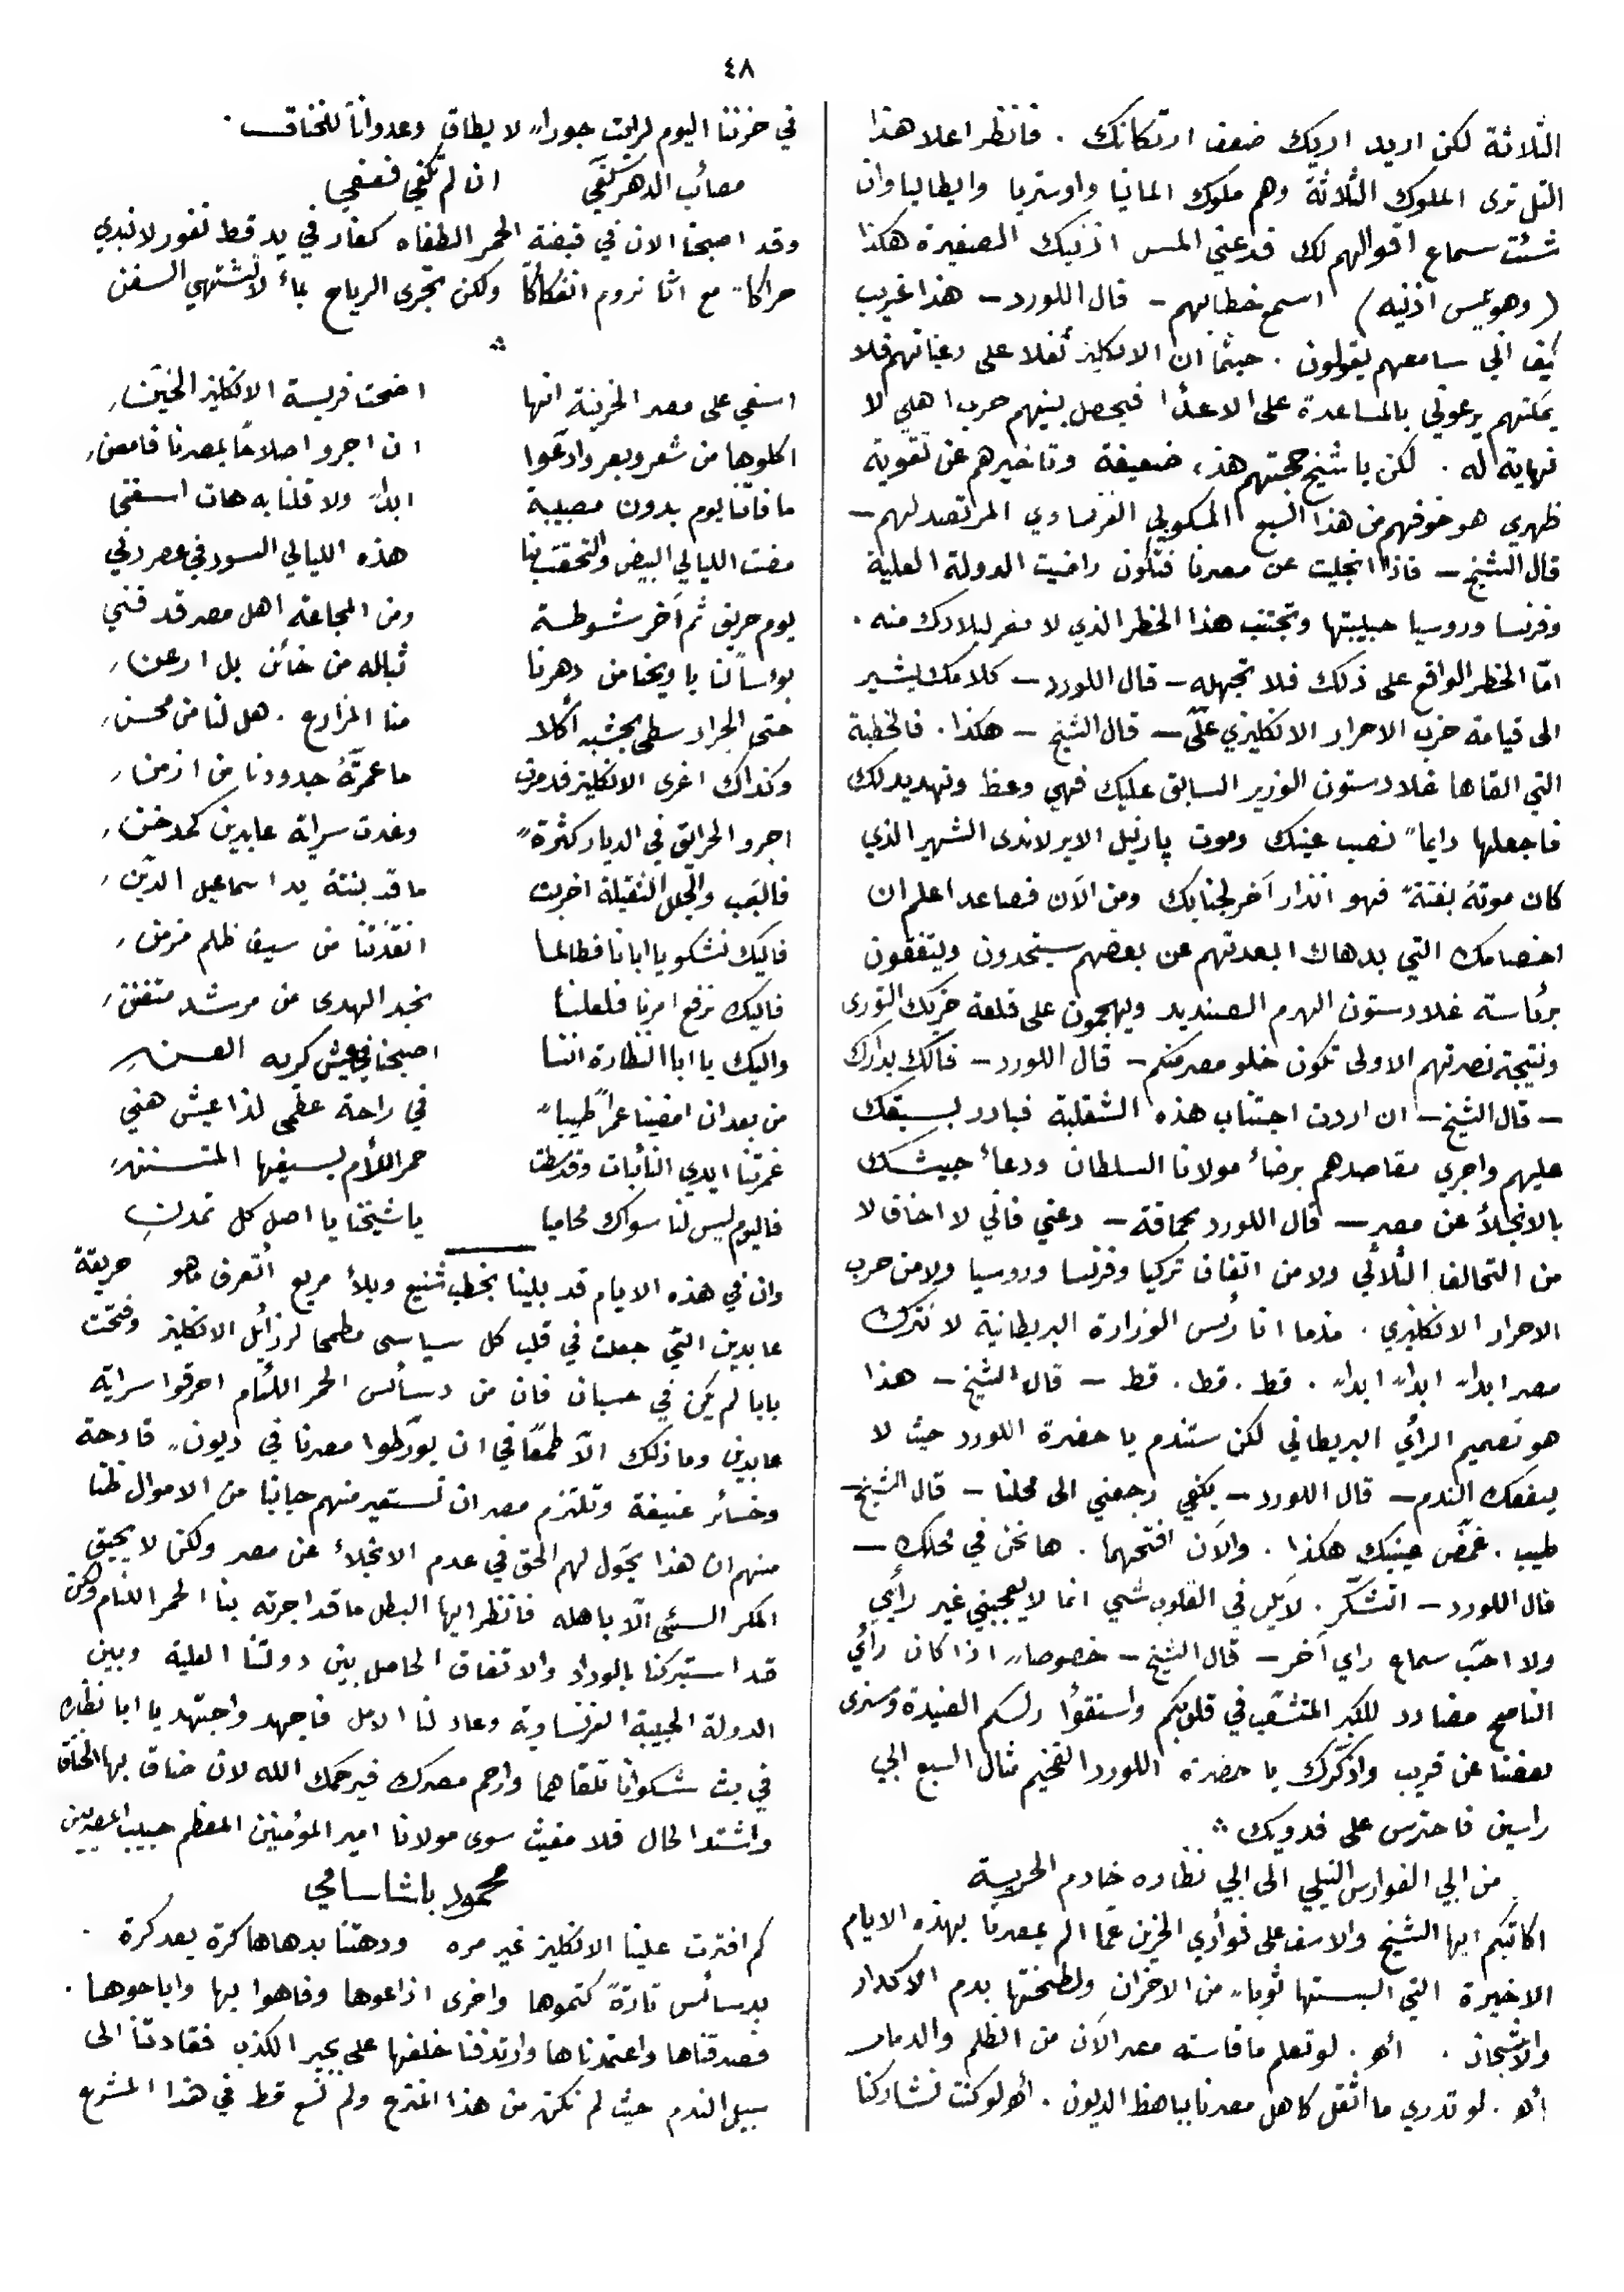 ٤٨
الثلاثة لكن اريد اريك ضعف ارتكانك . فانظر اعلا هذا
التل ترى الملوك الثلاثة وهم ملوك المانيا واوستريا وايطاليا وان
شئت سماع اقوالهم لك فدعني المس اذنيك الصغيرة هكذا
( وهو يمس اذنيه ) اسمع خطابهم – قال اللورد – هذا غريب
كيف اني سامعهم يقولون . حيثما ان الانكليز ثقلا على رعياتهم فلا
يمكنهم يدعوني بالمساعدة على الاعدأ فيحصل بينهم حرب اهلي لا
نهاية له . لكن يا شيخ حجتهم هذه ضعيفة وتاخيرهم عن تقوية
ظهري هو خوفهم من هذا السبع المسكوبي الفرنساوي المرتصد لهم –
قال الشيخ – فاذا انجليت عن مصرنا فتكون راضيت الدولة العلية
وفرنسا وروسيا حبيبتها وتجتنب هذا الخطر الذي لا مفر لبلادك منه .
امّا الخطر الواقع على ذلك فلا تجهله – قال اللورد – كلامك يشير
الى قيامة حزب الاحرار الانكليزي عليّ – قال الشيخ – هكذا . فالخطبة
التي القاها غلادستون الوزير السابق عليك فهي وعظ وتهديد لك
فاجعلها دايماً نصب عينك وموت پارنيل الايرلاندى الشهير الذي
كان موتهُ بغتةً فهو انذار آخر لجنابك ومن الآن فصاعدا اعلم ان
اخصامك التي بدهاك ابعدتهم عن بعضهم سيتحدون ويتفقون
برئاسة غلادستون الهرم الصنديد ويهجمون على قلعة حزبك التورى
ونتيجة نصرتهم الاولى تكون خلو مصر منكم – قال اللورد –
– قال الشيخ – ان اردت اجتناب هذه الشقلبة فبادر بسبقك
عليهم واجري مقاصدهم برضأ مولانا السلطان ودعأ جيشك
بالانجلأ عن مصر – قال اللورد بحماقة – دعني فاني لا اخاف لا
من التحالف الثلاثي ولا من اتفاق تركيا وفرنسا وروسيا ولا من حرب
الاحرار الانكليزي . مذما انا رئس الوزارة البريطانية لا نترك
مصر ابداً ابداً ابداً . قط . قط . قط – قال الشيخ – هذا
هو تصميم الرأي البريطاني لكن ستندم يا حضرة اللورد حيث لا
ينفعك الندم – قال اللورد – يكفي رجعني الى محلنا – قال الشيخ –
طيب . غمّض عينيك هكذا . والآن افتحهما . ها نحن في محلك –
قال اللورد – اتشكّر . لا يكن في القلوب شي انما لا يعجبني غير رأيي
ولا احبّ سماع راي آخر – قال الشيخ – خصوصاً اذا كان رأي
الناصح مضادد للكبر المتشعّب في قلوبكم واستقوأ رأسكم العنيدة وسنرى
بعضنا عن قريب واذكّرك يا حضرة اللورد الفخيم مثال السبع ابي
راسين فاحترس على فدويك
من ابي الفوارس النيلي الى ابي نظاره خادم الحرية
اكاتبكم ايها الشيخ والاسف على فوأدي الحزين عمّا الم بمصرنا بهذه الايام
الاخيرة التي البستها ثوباً من الاحزان ولطختها بدم الاكدار
والاشجان . أهو . لو تعلم ما قاسته مصر الآن من الظلم والدمار
أهو . لو تدري ما اثقل كاهل مصرنا بباهظ الديون . أهو لو كنت تشاركنا
في حزننا اليوم لرايت جوراً لا يطاق وعدواناً للخناق .
مصائب الدهر كفّي ان لم تكفي فعفي
وقد اصبحنا الان في قبضة الحمر الطغاه كفار في يد قط نفور لا نبدي
حراكاً مع اننا نروم انفكاكاً ولكن تجرى الرياح بمأ لا تشتهي السفن
اسفي على مصر الحزينة انها اضحت فريسة الانكليز الخيّن
اكلوها من شعر وبعر وادّعوا ان اجرو اصلاحاً بمصرنا فامعن
ما فاتنا يوم بدون مصيبة ابداً ولا قلنا به هات اسقني
مضت الليالي البيض والتحقت بنا هذه الليالي السود في عصر دني
يوم حريق ثم آخر شوطسة ومن المجاعة اهل مصر قد فني
بوءساً لنا يا ويحنا من دهرنا تباله من خائن بل ارعن
حتى الجراد سطى بجشبه أكلا منا المزارع . هل لنا من محسن
وكذاك اغرى الانكليز فدمرت ما عمرتهُ جدودنا من ازمن
اجرو الحرائق في الديار كثرةً وغدت سراية عابدين كمدخن
فالبَمب والجلل الثقيلة اخربت ما قد بنته يد اسماعيل الدّين
فاليك نشكو يا ابانا فطالما انقذتنا من سيف ظلم مزمن
فاليك نرفع امرنا فلعلنا نجد الهدى من مرشد متفنن
واليك يا ابا النظارة اننا اصبحنا في عيش كريه
من بعد ان امضينا عمراً طيباً في راحة عظمى لذا عيش هني
غمرتنا ايدي النأبات وقد سطت حمر اللأم بسيفها
فاليوم ليس لنا سواك محاميا يا شيخنا يا اصل كل تمدن
وان في هذه الايام قد بلينا بخطب شنيع وبلأ مريع أتعرف ما هو حريقة
عابدين التي جعلت في قلب كل سياسى مطمحا لرزأيل الانكليز وفتحت
بابا لم يكن في حسبان فان من دسأئس الحمر اللئام احرقوا سراية
عابدين وما ذلك الّا طمعًا في ان يورّطوا مصرنا في ديونٍ فادحة
وخسائر عنيفة وتلتزم مصر ان تستعير منهم جانبا من الاموال ظنا
منهم ان هذا يخوّل لهم الحق في عدم الانجلاء عن مصر ولكن لا يحيق
المكر السيّئ الّا باهله فانظر ايها البطل ما قد اجرته بنا الحمر اللئام ولكن
قد استبركنا بالوداد والاتفاق الحاصل بين دولتنا العلية وبين
الدولة الحبيبة الفرنساوية وعاد لنا الامل فاجهد واجتهد يا ابا نظاره
في بث شكوانا تلقاهما وارحم مصرك فيرحمك الله لان ضاق بها الخناق
واشتد الحال فلا مغيث سوى مولانا امير المؤمنين المعظم حبيب المصريين
محمود باشا سامي
كم افترت علينا الانكليز غير مره ودهتنا بدهاها كرة بعد كرة .
بدسائس تارةً كتموها واخرى اذاعوها وفاهوا بها واباحوها .
فصدقناها واعتمدناها وارتدفنا خلفها على بحير الكذب فقادتنا الى
سبيل الندم حيث لم نكن من هذا المنزح ولم نسع قط في هذا المشرع